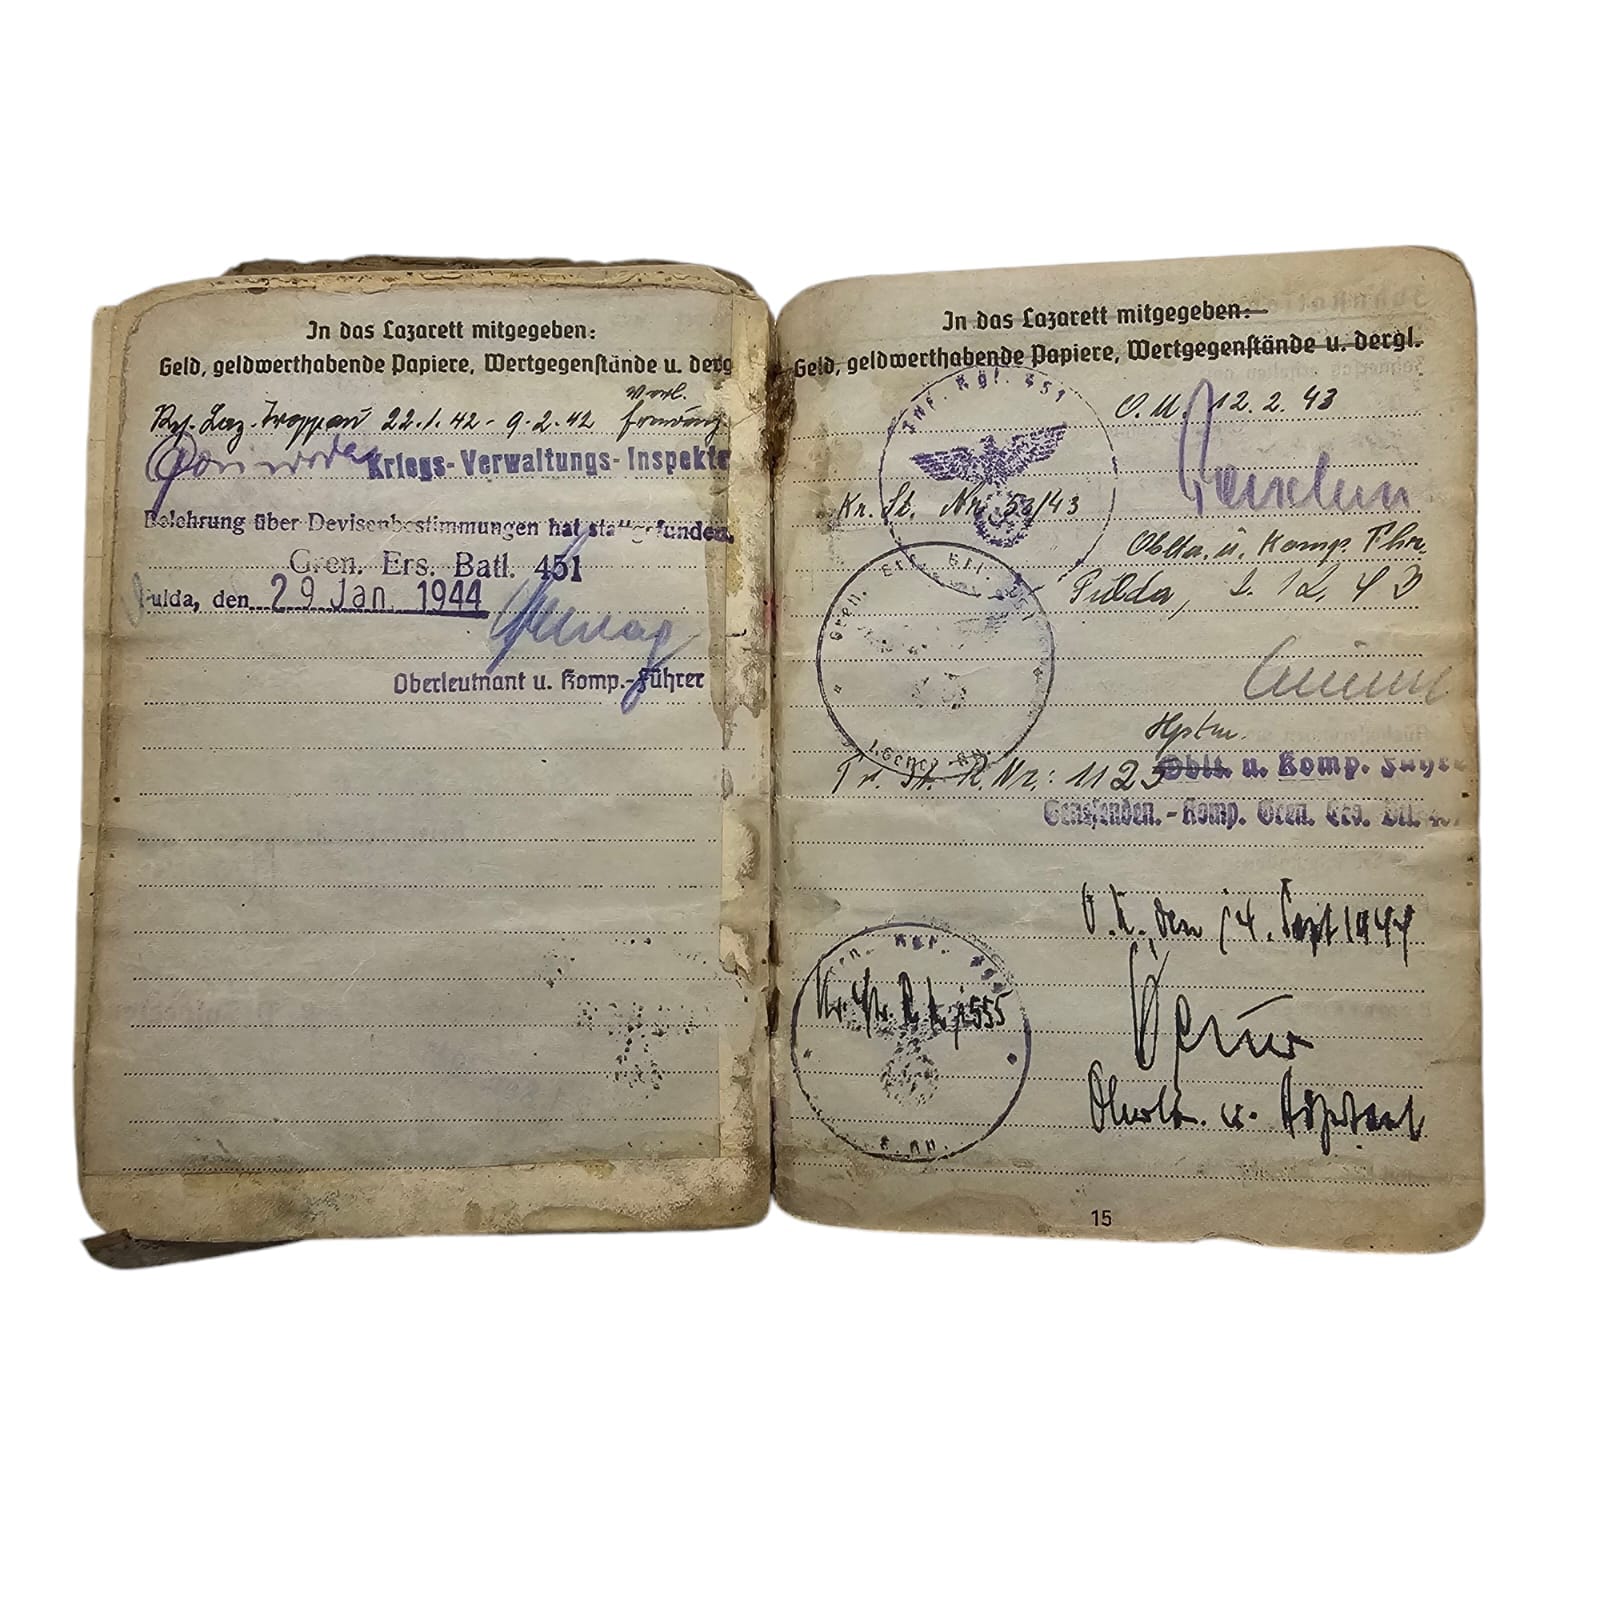 In das Lazarett mitgegeben:
Geld, geldwerthabende Papiere, Wertgegenstände u. derg
Res. Laz. Troppau 22.1.42 - 9.2.42
Kriegs-Verwaltungs-Inspekto
Belehrung über Devisenbestimmungen hat stattgefunden.
Gren. Ers. Batl. 451
Fulda, den 29 Jan. 1944
Oberleutnant u. Komp.-Führer
In das Lazarett mitgegeben:
Geld, geldwerthabende Papiere, Wertgegenstände u. dergl.
Inf. Rgt. 451
O.U. 12.2.43
Kr. St. Nr. 53/43
Obltn. u. Komp. Fhr.
Gren. Ers. Btl.
Fulda, 2.12.43
Hptm.
Tr. St. R. Nr.: 1123
Oblt. u. Komp. Führe
Genesenden.-Komp. Gren. Ers. Btl. 451
O.U. den 14. Sept 1944
Gren. Rgt.
Oberlt. u. Adjutant
15